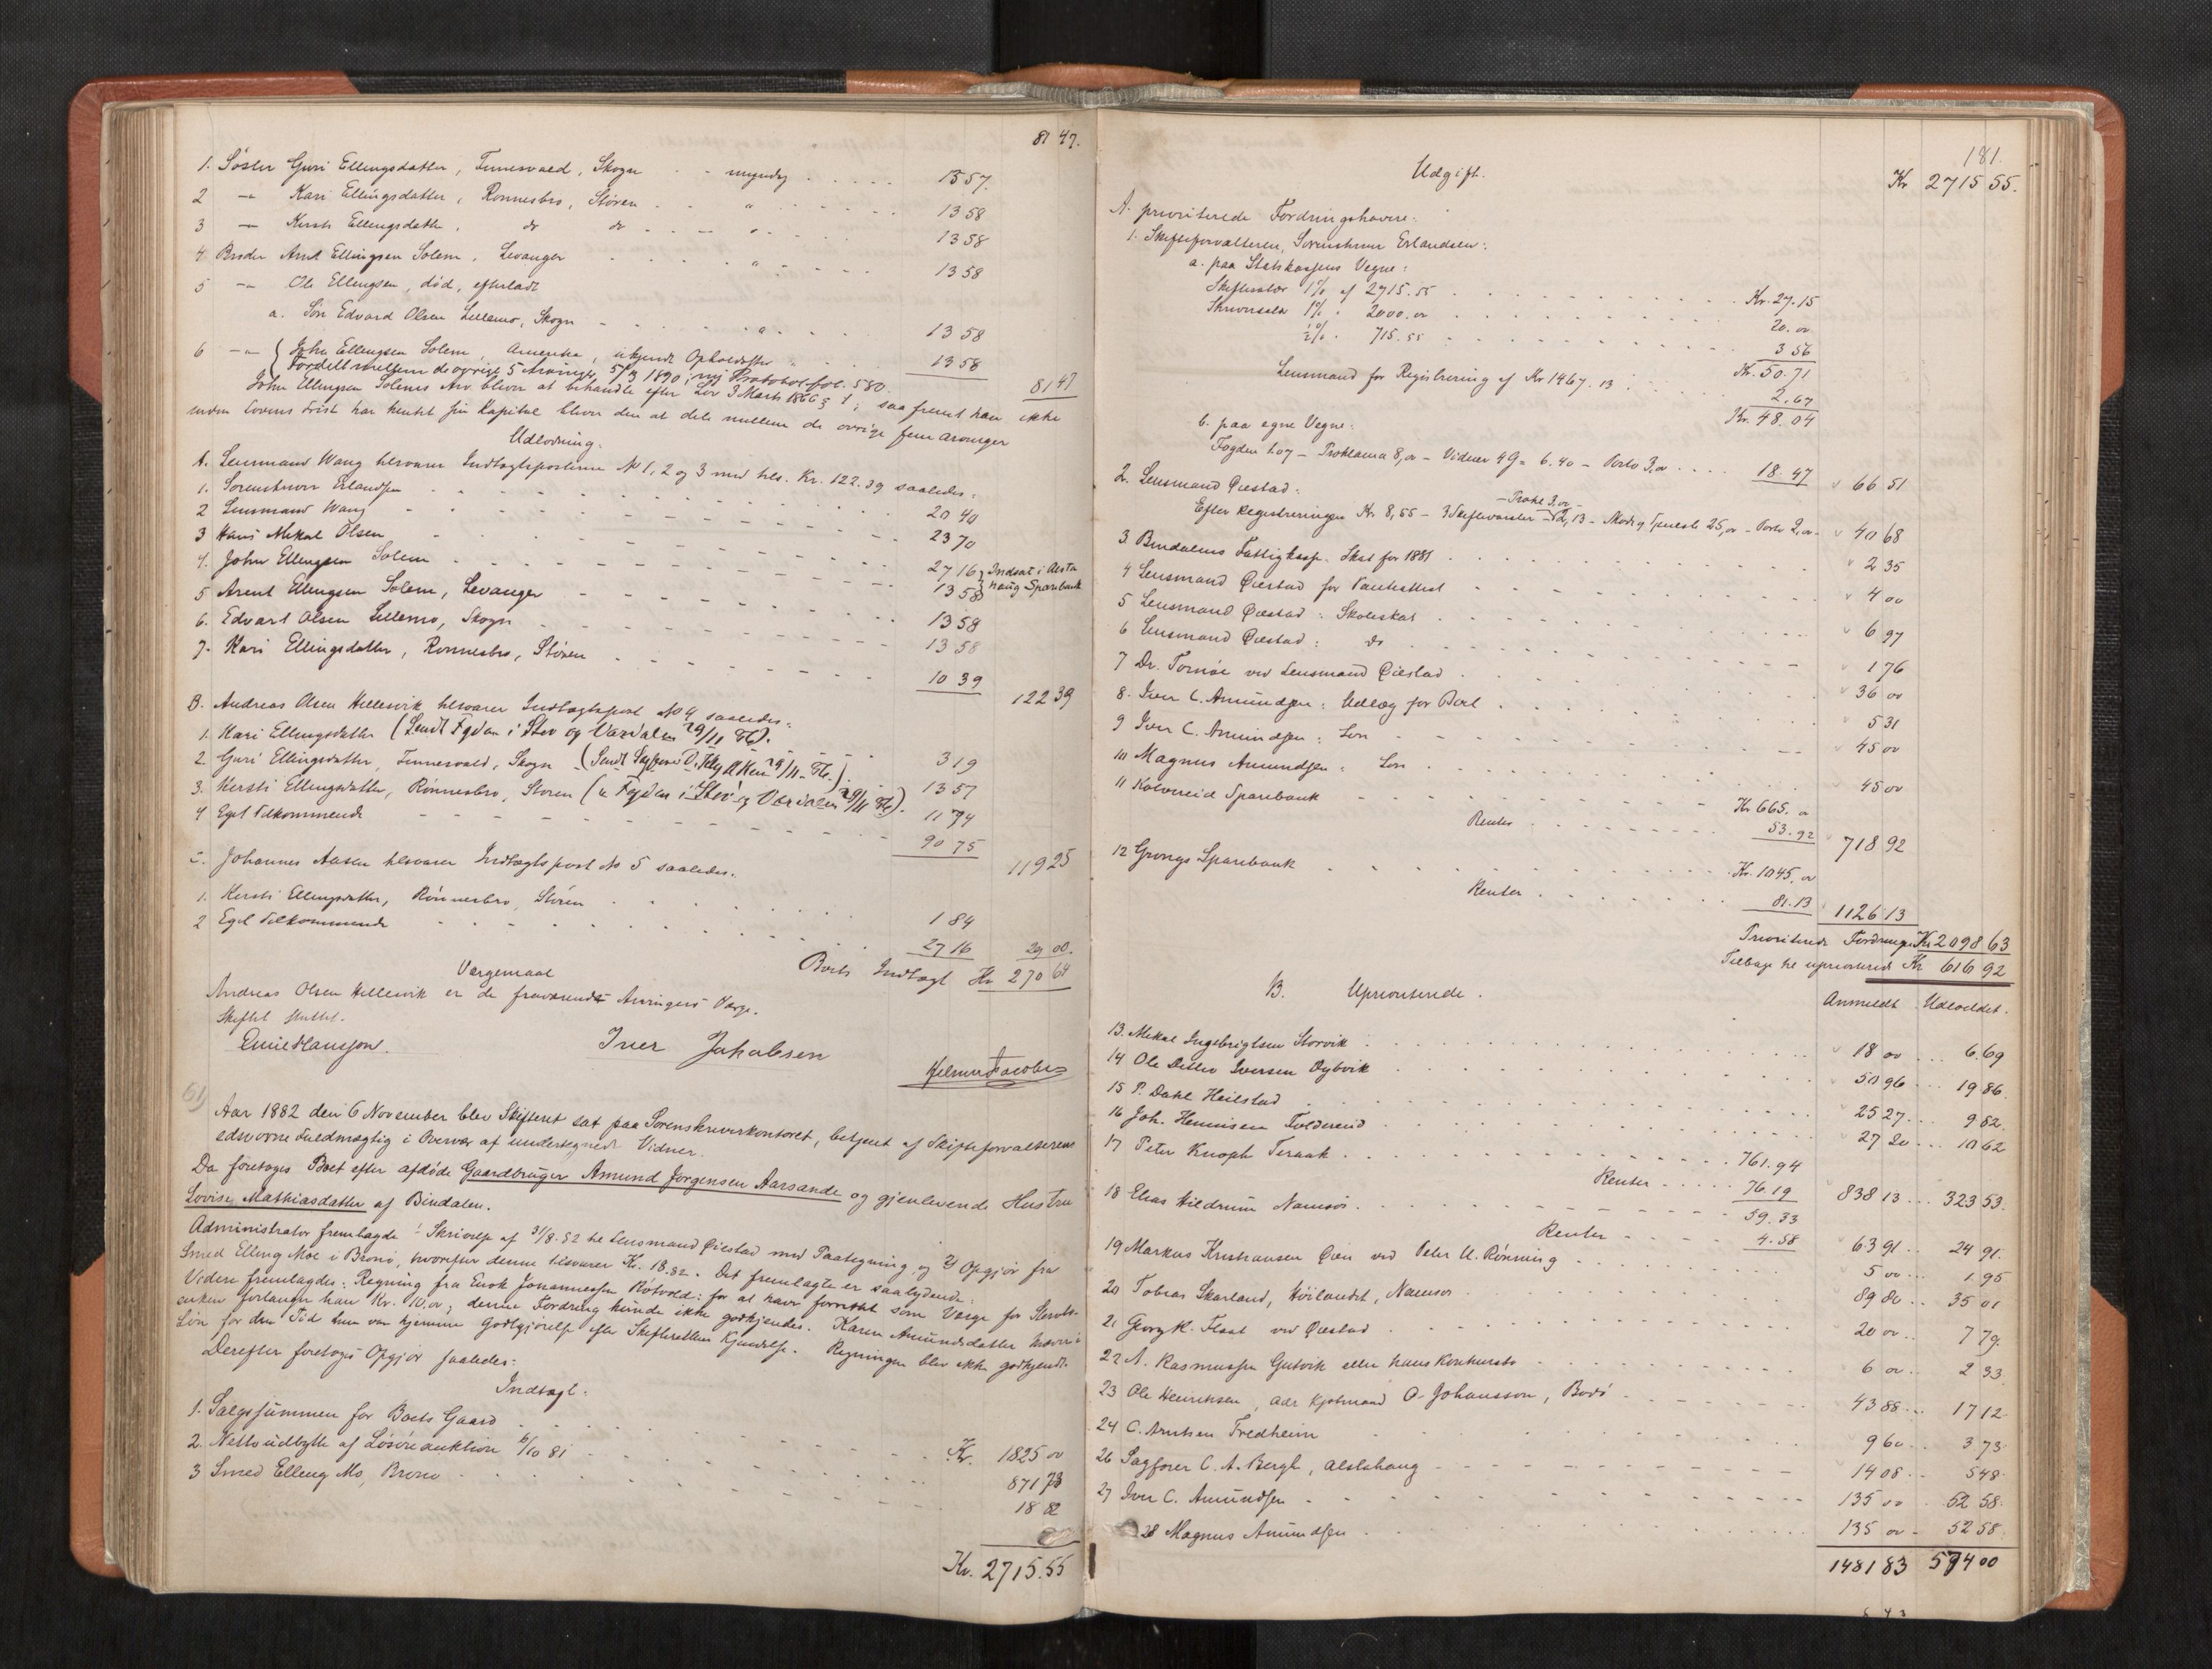 81 47.
1. Søster Guri Ellingsdatter, Finnesvald, Skogn - - myndig 13 57.
2 — Kari Ellingsdatter, Rønnesbro, Støren - - " 13 58
3 — Kersti Ellingsdatter, do do - - " 13 58
4 Broder Arnt Ellingsen Solem, Levanger " 13 58
5 — Ole Ellingsen, død, efterladt
a. Søn Edvard Olsen Lillemo, Skogn - - " 13 58
6 — { John Ellingsen Solem, Amerika, ukjendt Opholdssted 13 58
Fordelt mellem de øvrige 5 Arvinger 5/3 1890, ny Protokol fol. 580. 81 47
John Ellingsen Solems Arv bliver at behandle efter Lov 3 Marts 1866 § 1; saafremt han ikke
inden Lovens Frist har hentet sin Kapital bliver den at dele mellem de øvrige fem Arvinger
Udlodning.
A. Lensmand Wang tilsvarer Indtægtsposterne No 1, 2 og 3 med tils. Kr. 122.39 saaledes:
1. Sorenskriver Erlandsen 20 40
2 Lensmand Wang 23 70
3 Hans Mikal Olsen 27 16
4. John Ellingsen Solem 13 58 } Indsat i Alsta
haug Sparebank
5 Arent Ellingsen Solem, Levanger 13 58
6. Edvart Olsen Lillemo, Skogn 13 58
7. Kari Ellingsdatter, Rønnesbro, Støren 10 39
122 39
B. Andreas Olsen Hellesvik tilsvarer Indtægtspost No 4 saaledes:
1. Kari Ellingsdatter (Sendt Fogden i Stør og Værdalen 29/11 ). 3 19
2. Guri Ellingsdatter, Finnesvald, Skogn (Sendt 29/11 ). 13 57
3. Kersti Ellingsdatter, Rønnesbro, Støren (" Fogden i Stør og Værdalen 29/11 ). 11 74
4 Eget Tilkommende 90 75
119 25
C. Johannes Aasen tilsvarer Indtægtspost No 5 saaledes.
1. Kersti Ellingsdatter, Rønnesbro, Støren 1 84
2 Eget Tilkommende 27 16 29 00.
Boets Indtægt Kr 270 64
Værgemaal
Andreas Olsen Hellesvik er de fraværende Arvingers Værge.
Skiftet sluttet.
Emil Hansson. Iver Jakobsen Hilmar Jacobsen
61)
Aar 1882 den 6 November blev Skifteret sat paa Sorenskriverkontoret, betjent af Skifteforvalterens
edsvorne Fuldmægtig i Overvær af undertegnede Vidner.
Da foretoges Boet efter afdøde Gaardbruger Amund Jørgensen Aarsande og gjenlevende Hustru
Lovise Mathiasdatter af Bindalen.
Administrator fremlagde 1 Skrivelse af 31/8.82 til Lensmand Øiestad med Paategning og 2) Opgjør fra
Smed Elling Moe i Brønø, hvorefter denne tilsvarer Kr. 18.82. Det fremlagte er saalydende:
Videre fremlagdes: Regning fra Enok Johannessen Røtvold: for at have forrettet som Værge for Stervbo-
enken forlanger han Kr. 10,oo; denne Fordring kunde ikke godkjendes. Karen Amundsdatter
Løn for den Tid hun var hjemme Godtgjørelse efter Skifterettens Kjendelse. Regningen blev ikke godkjendt.
Derefter foretoges Opgjør saaledes:
Indtægt.
1. Salgssummen for Boets Gaard Kr. 1825 oo
2. Nettoudbytte af Løsøreauktion 6/10 81 871 73
3 Smed Elling Mo, Brønø 18 82
Kr. 2715.55
181.
Udgift. Kr 2715 55.
A. prioriterede Fordringshavere:
1. Skifteforvalteren, Sorenskriver Erlandsen:
a. paa Statskassens Vegne:
Skiftesalær 1% af 2715.55 Kr. 27.15
Skriversalær 1% " 2000.oo 20.oo
½% " 715.55 3 56
Kr. 50.71
Lensmand for Registrering af Kr 1467.13 2.67
Kr. 48.04
b. paa egne Vegne:
Fogden 1.07 - Proklama 8,oo - Vidner 49 = 6.40 - Porto 3,oo 18.47 66 51
2. Lensmand Øiestad:
-Prokl 3.oo-
Efter Registreringen Kr 8,55 - 3 Skiftevarsler 2,13 - Møde og Tjeneste 25,oo - Porto 2,oo 40 68
3. Bindalens Fattigkasse. Skat for 1881 2 35
4 Lensmand Øiestad for Panteattest 4 00
5 Lensmand Øiestad: Skoleskat 6 97
6 Lensmand Øiestad: do 1 76
7 Dr. Tornøe ved Lensmand Øiestad 36 oo
8. Iver C. Amundsen: Udlæg for Boet 5 31
9 Iver C. Amundsen: Løn 45 oo
10 Magnus Amundsen: Løn 45 oo
11 Kolvereid Sparebank Kr 665. "
Renter 53.92 718 92
12 Grongs Sparebank Kr. 1045.oo
Renter 81.13 1126 13
Prioriterede Fordringer Kr 2098 63
Tilbage til uprioriterede Kr 616 92
B. Uprioriterede. Anmeldt Udloddet.
13. Mikal Ingebrigtsen Storvik 18 oo 6.69
14 Ole Detlev Iversen Dybvik 50 96 19 86.
15 P. Dahl Heilstad 25 27 9 82.
16 Joh. Henriksen Tolderud 27 20 10 62
17 Peter Knoph Teraak 761.94
Renter 76.19 838 13 323 53.
18 Elias Hildrum Namsos 59.33
Renter 4.58 63 91 24 91.
19 Markus Kristiansen Øien ved Peter U. Rønning 5 oo 1.95
20 Tobias Skarland, Høilandet, Namsos 89 80 35 01
21 Georg K. Flaat ved Øiestad 20 oo 7 79.
22 A. Rasmussen Gutvik eller hans Konkursbo 6 oo 2 33
23 Ole Henriksen, adr Kjøbmand O. Johansson, Bodø 43 88 17 12
24 C. Arntsen Fredheim 9 60 3 73
26 Sagfører C. A. Bergh, Alstahaug 14 08 5 48
27 Iver C. Amundsen 135 oo 52 58.
28 Magnus Amundsen 135 oo 52 58.
1481 83 574 00